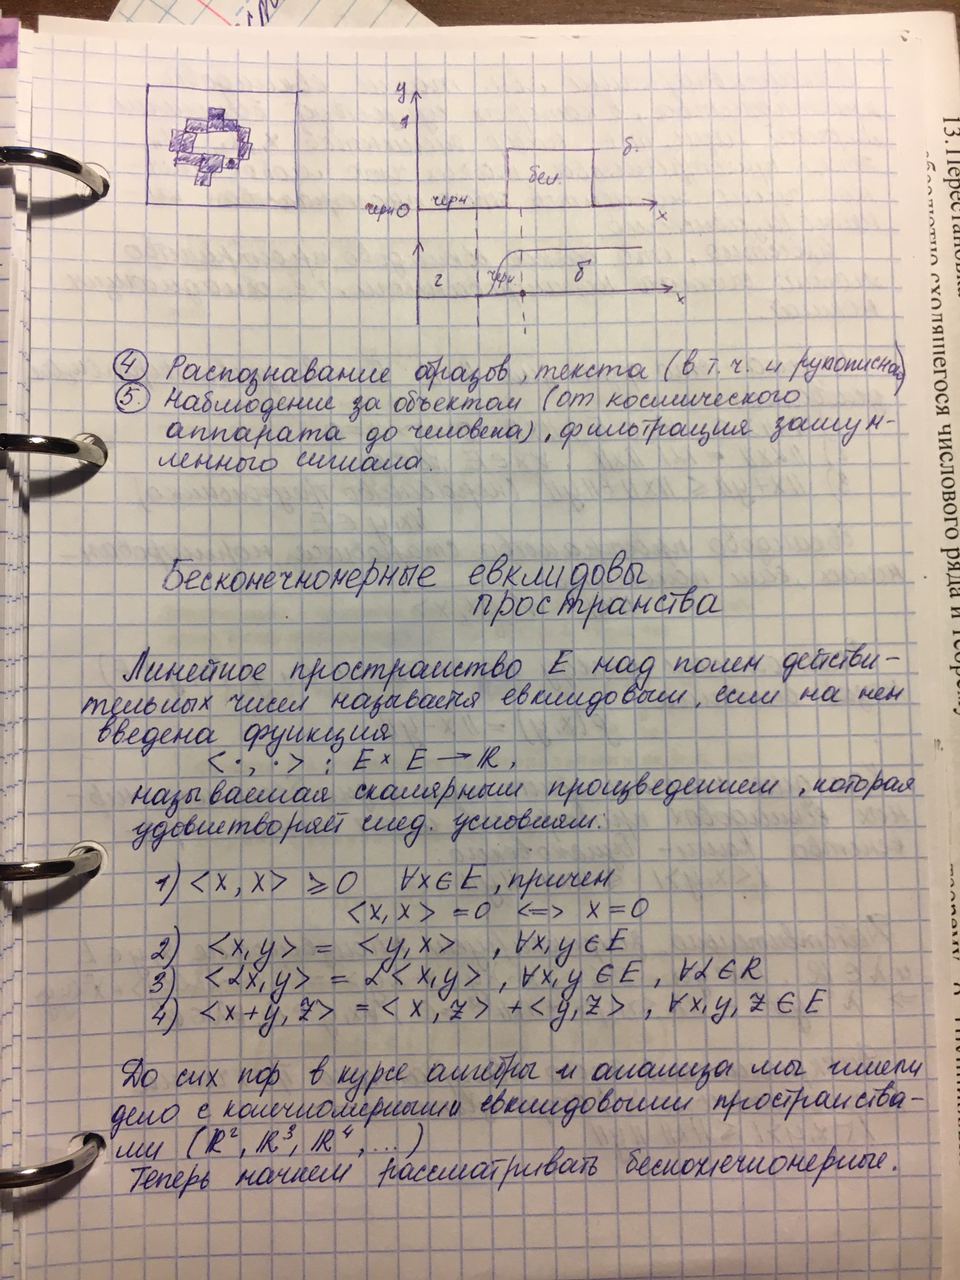 y
1
б.
бел.
черн.
черн 0
x
г
черн.
б
x
④ Распознавание образов, текста (в т.ч. и рукописная)
⑤ Наблюдение за объектом (от космического
аппарата до человека), фильтрация зашум-
ленного сигнала.
Бесконечномерные евклидовы
пространства
Линейное пространство E над полем действи-
тельных чисел называется евклидовым, если на нем
введена функция
<·,·> : E × E → ℝ,
называемая скалярным произведением, которая
удовлетворяет след. условиям:
1) <x, x> ⩾ 0 ∀x ∈ E, причем
<x, x> = 0 <=> x = 0
2) <x, y> = <y, x>, ∀x, y ∈ E
3) <αx, y> = α<x, y>, ∀x, y ∈ E, ∀α ∈ R
4) <x+y, z> = <x, z> + <y, z>, ∀x, y, z ∈ E
До сих пор в курсе алгебры и анализа мы имели
дело с конечномерными евклидовыми пространства-
ми (ℝ², ℝ³, ℝ⁴, ...)
Теперь начнем рассматривать бесконечномерные.
13. Перестановка
сходящегося числового ряда и теорему